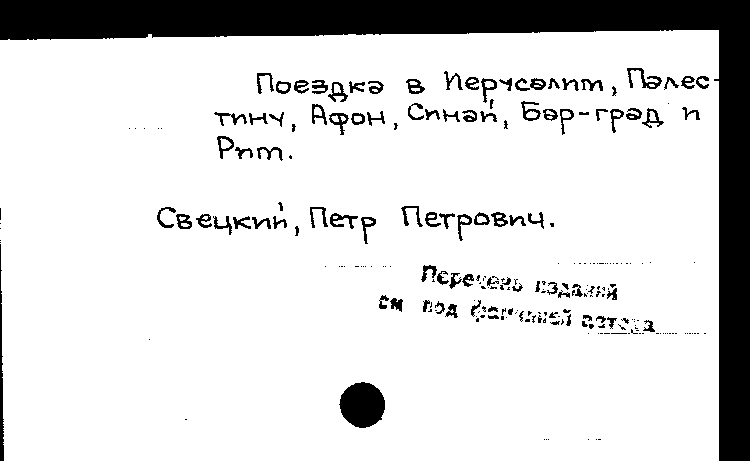 Поездка в Иерусалим, Палес-
тину, Афон, Синай, Бар-град и
Рим.
Свецкий, Петр Петрович.
Перечень изданий
см под фамилией автора